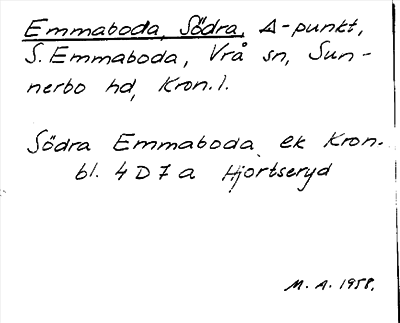 Emmaboda, Södra, Δ-punkt,
S. Emmaboda, Vrå sn, Sun-
nerbo hd, Kron. l.
Södra Emmaboda ek Kron.
bl. 4 D 7 a Hjortseryd
M. A. 1958.